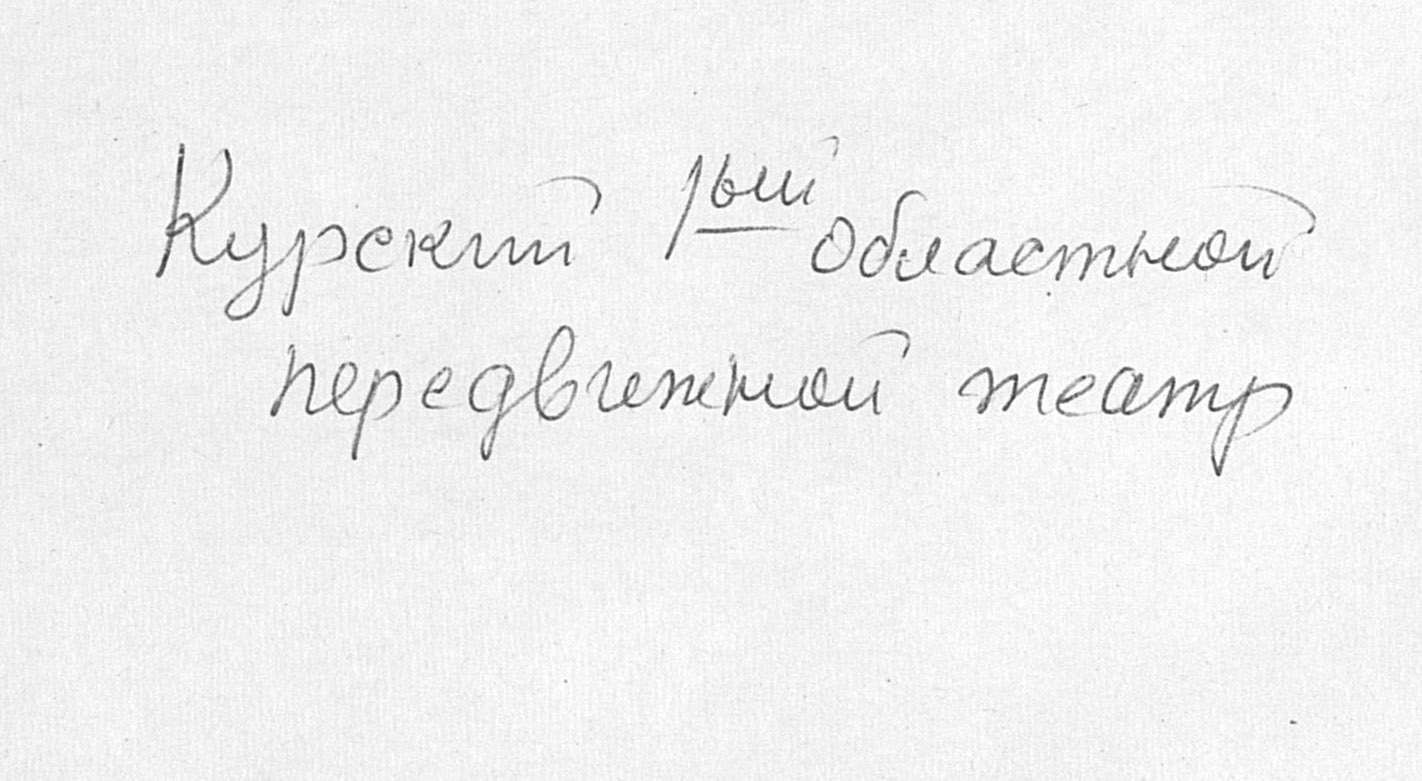 Курский 1ый областной
передвижной театр